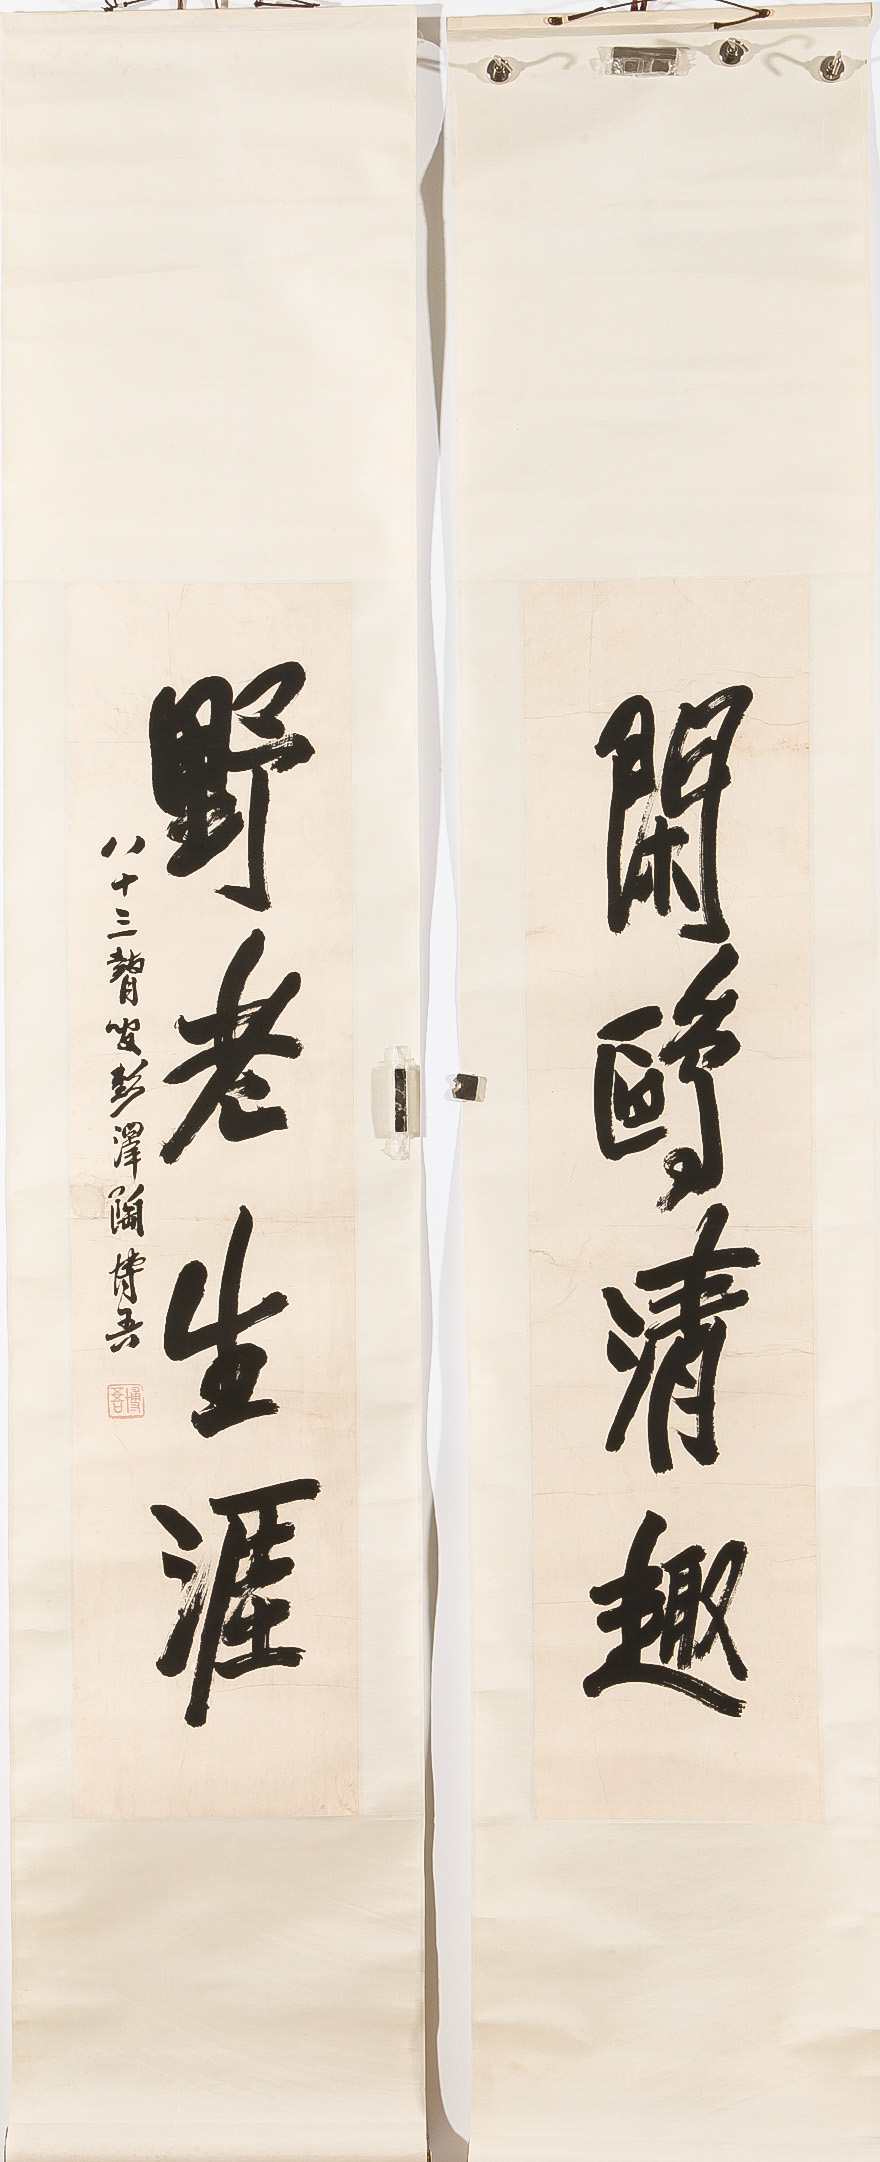 閑鷗清趣
野老生涯
八十三瞽叟彭澤陶博吾
博吾